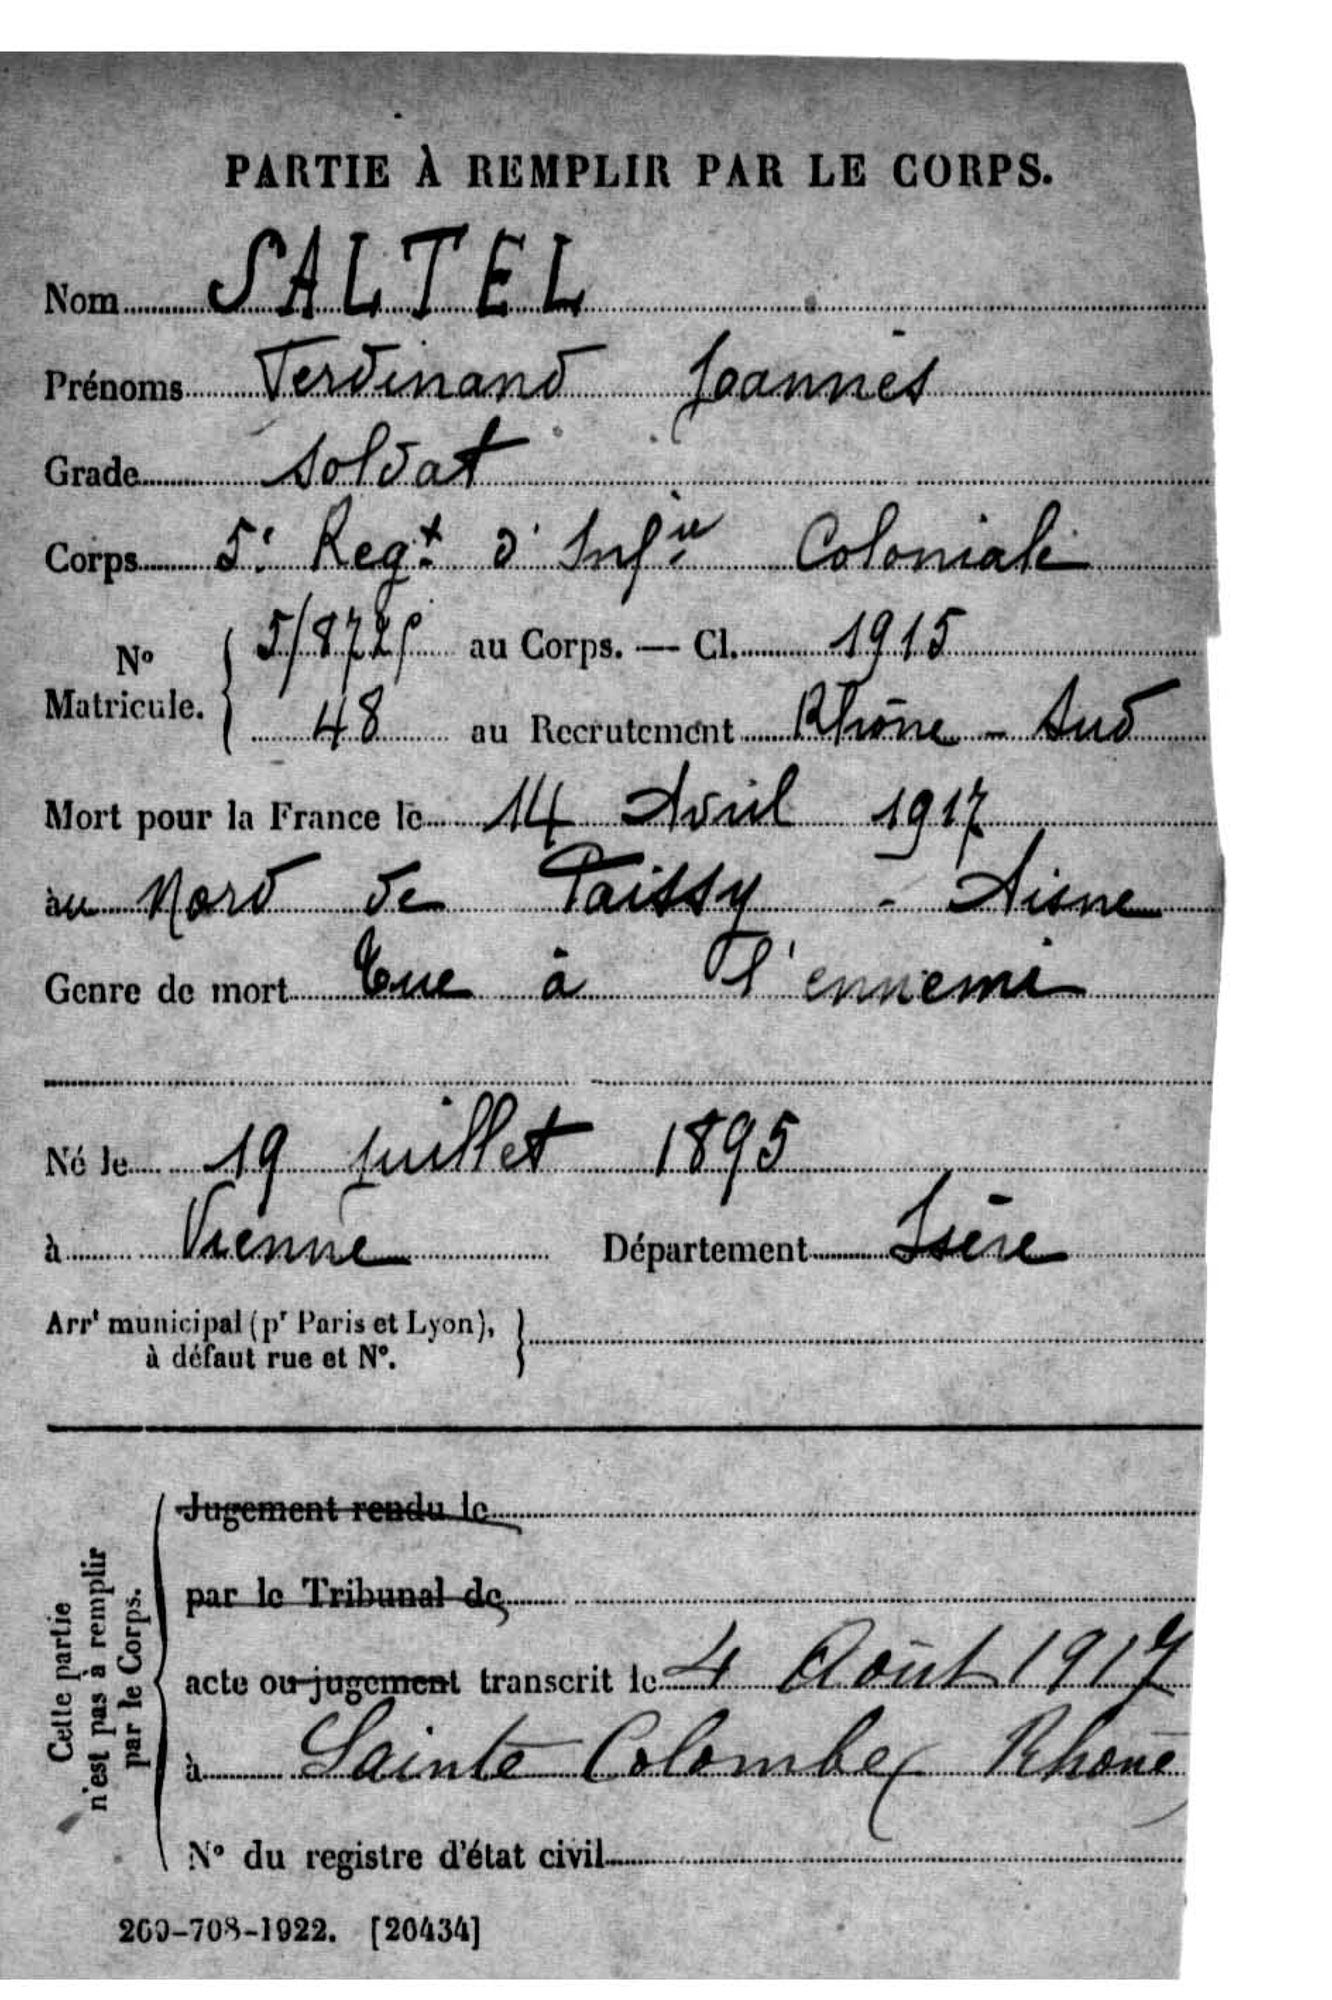 PARTIE À REMPLIR PAR LE CORPS.
Nom SALTEL
Prénoms Ferdinand Joannès
Grade Soldat
Corps 5e Regt d'Infie Coloniale
No Matricule. { au Corps. — Cl. 1915
48 au Recrutement Rhône - Sud
Mort pour la France le 14 Avril 1917
au Nord de Paissy - Aisne
Genre de mort Tué à l'ennemi
Né le 19 juillet 1895
à Vienne Département Isère
Arrt municipal (pr Paris et Lyon), }
à défaut rue et No.
Cette partie
n'est pas à remplir
par le Corps.
Jugement rendu le
par le Tribunal de
acte ou jugement transcrit le 4 Août 1917
à Sainte Colombe (Rhône)
No du registre d'état civil
269-708-1922. [26434]